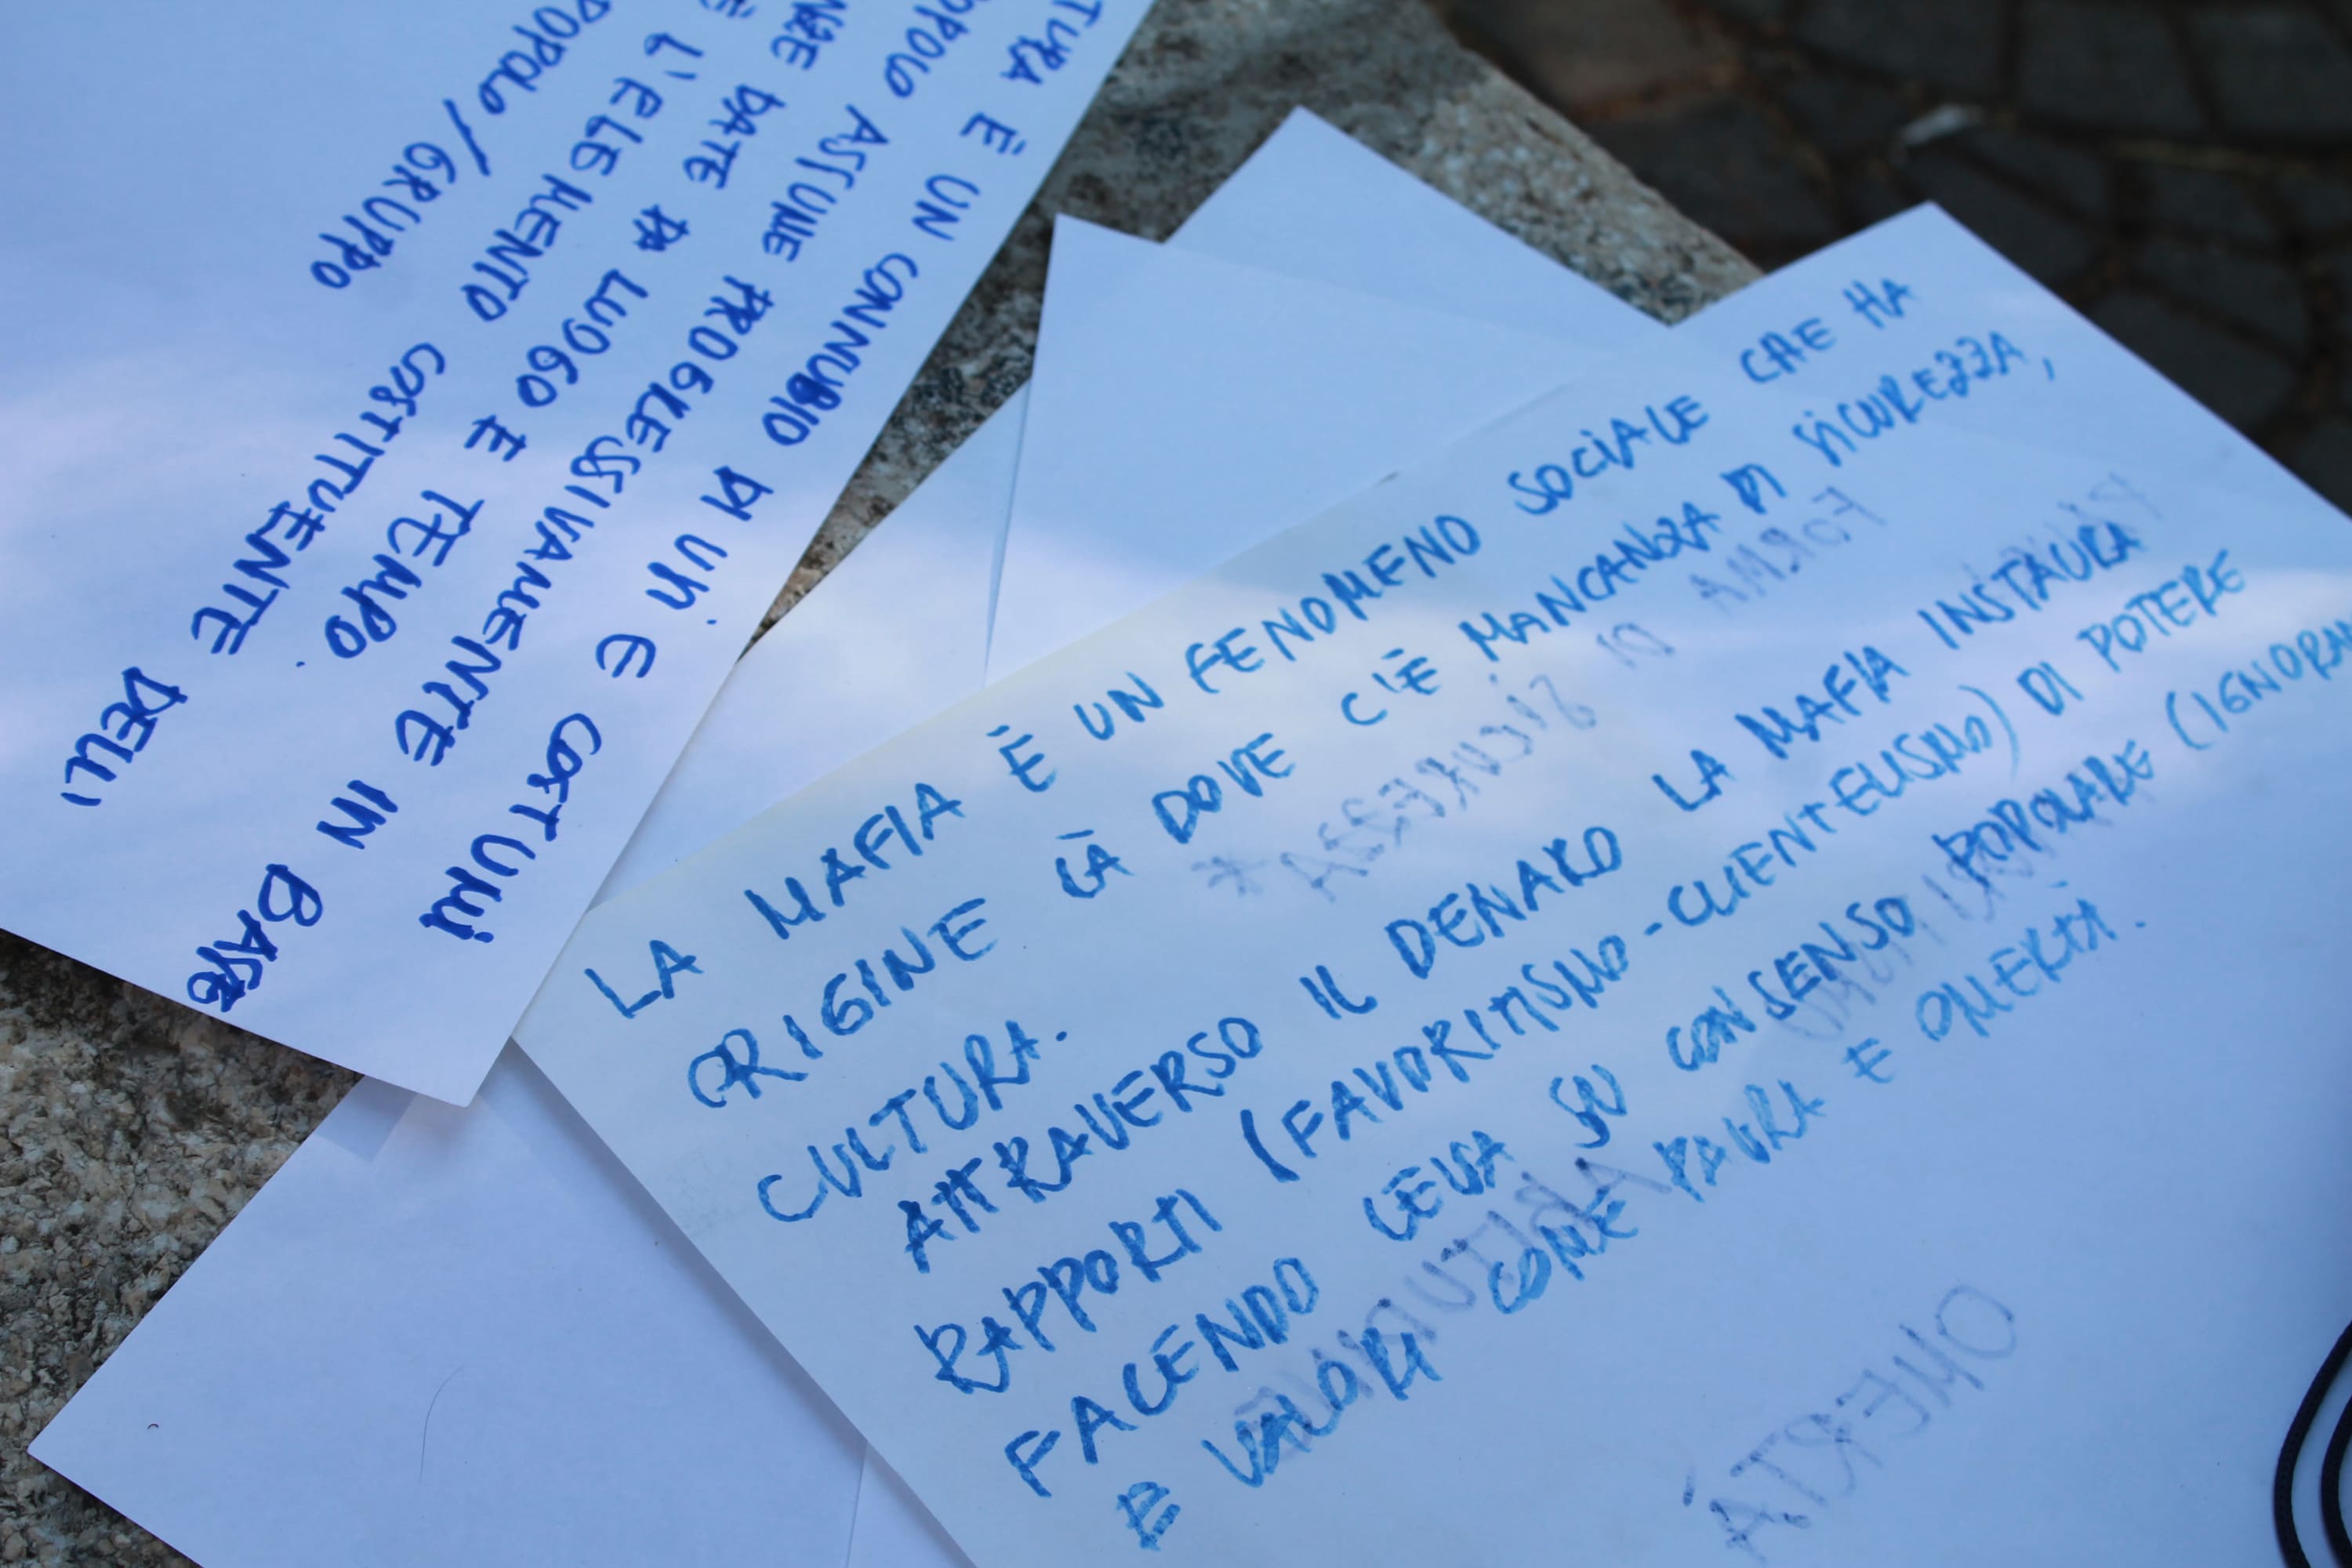 TURA È UN CONNUBIO DI USI E COSTUMI
OPOLO ASSUME PROGRESSIVAMENTE IN BASE
NZE DATE DA LUOGO E TEMPO.
È L'ELEMENTO COSTITUENTE DELL'
POPOLO/GRUPPO
LA MAFIA È UN FENOMENO SOCIALE CHE HA
ORIGINE LÀ DOVE C'È MANCANZA DI SICUREZZA,
CULTURA.
ATTRAVERSO IL DENARO LA MAFIA INSTAURA
RAPPORTI (FAVORITISMO-CLIENTELISMO) DI POTERE
FACENDO LEVA SU CONSENSO POPOLARE (IGNORAN
E VALORI COME PAURA E OMERTÀ.
FORMA
DI SICUREZZA *
OMERTÀ